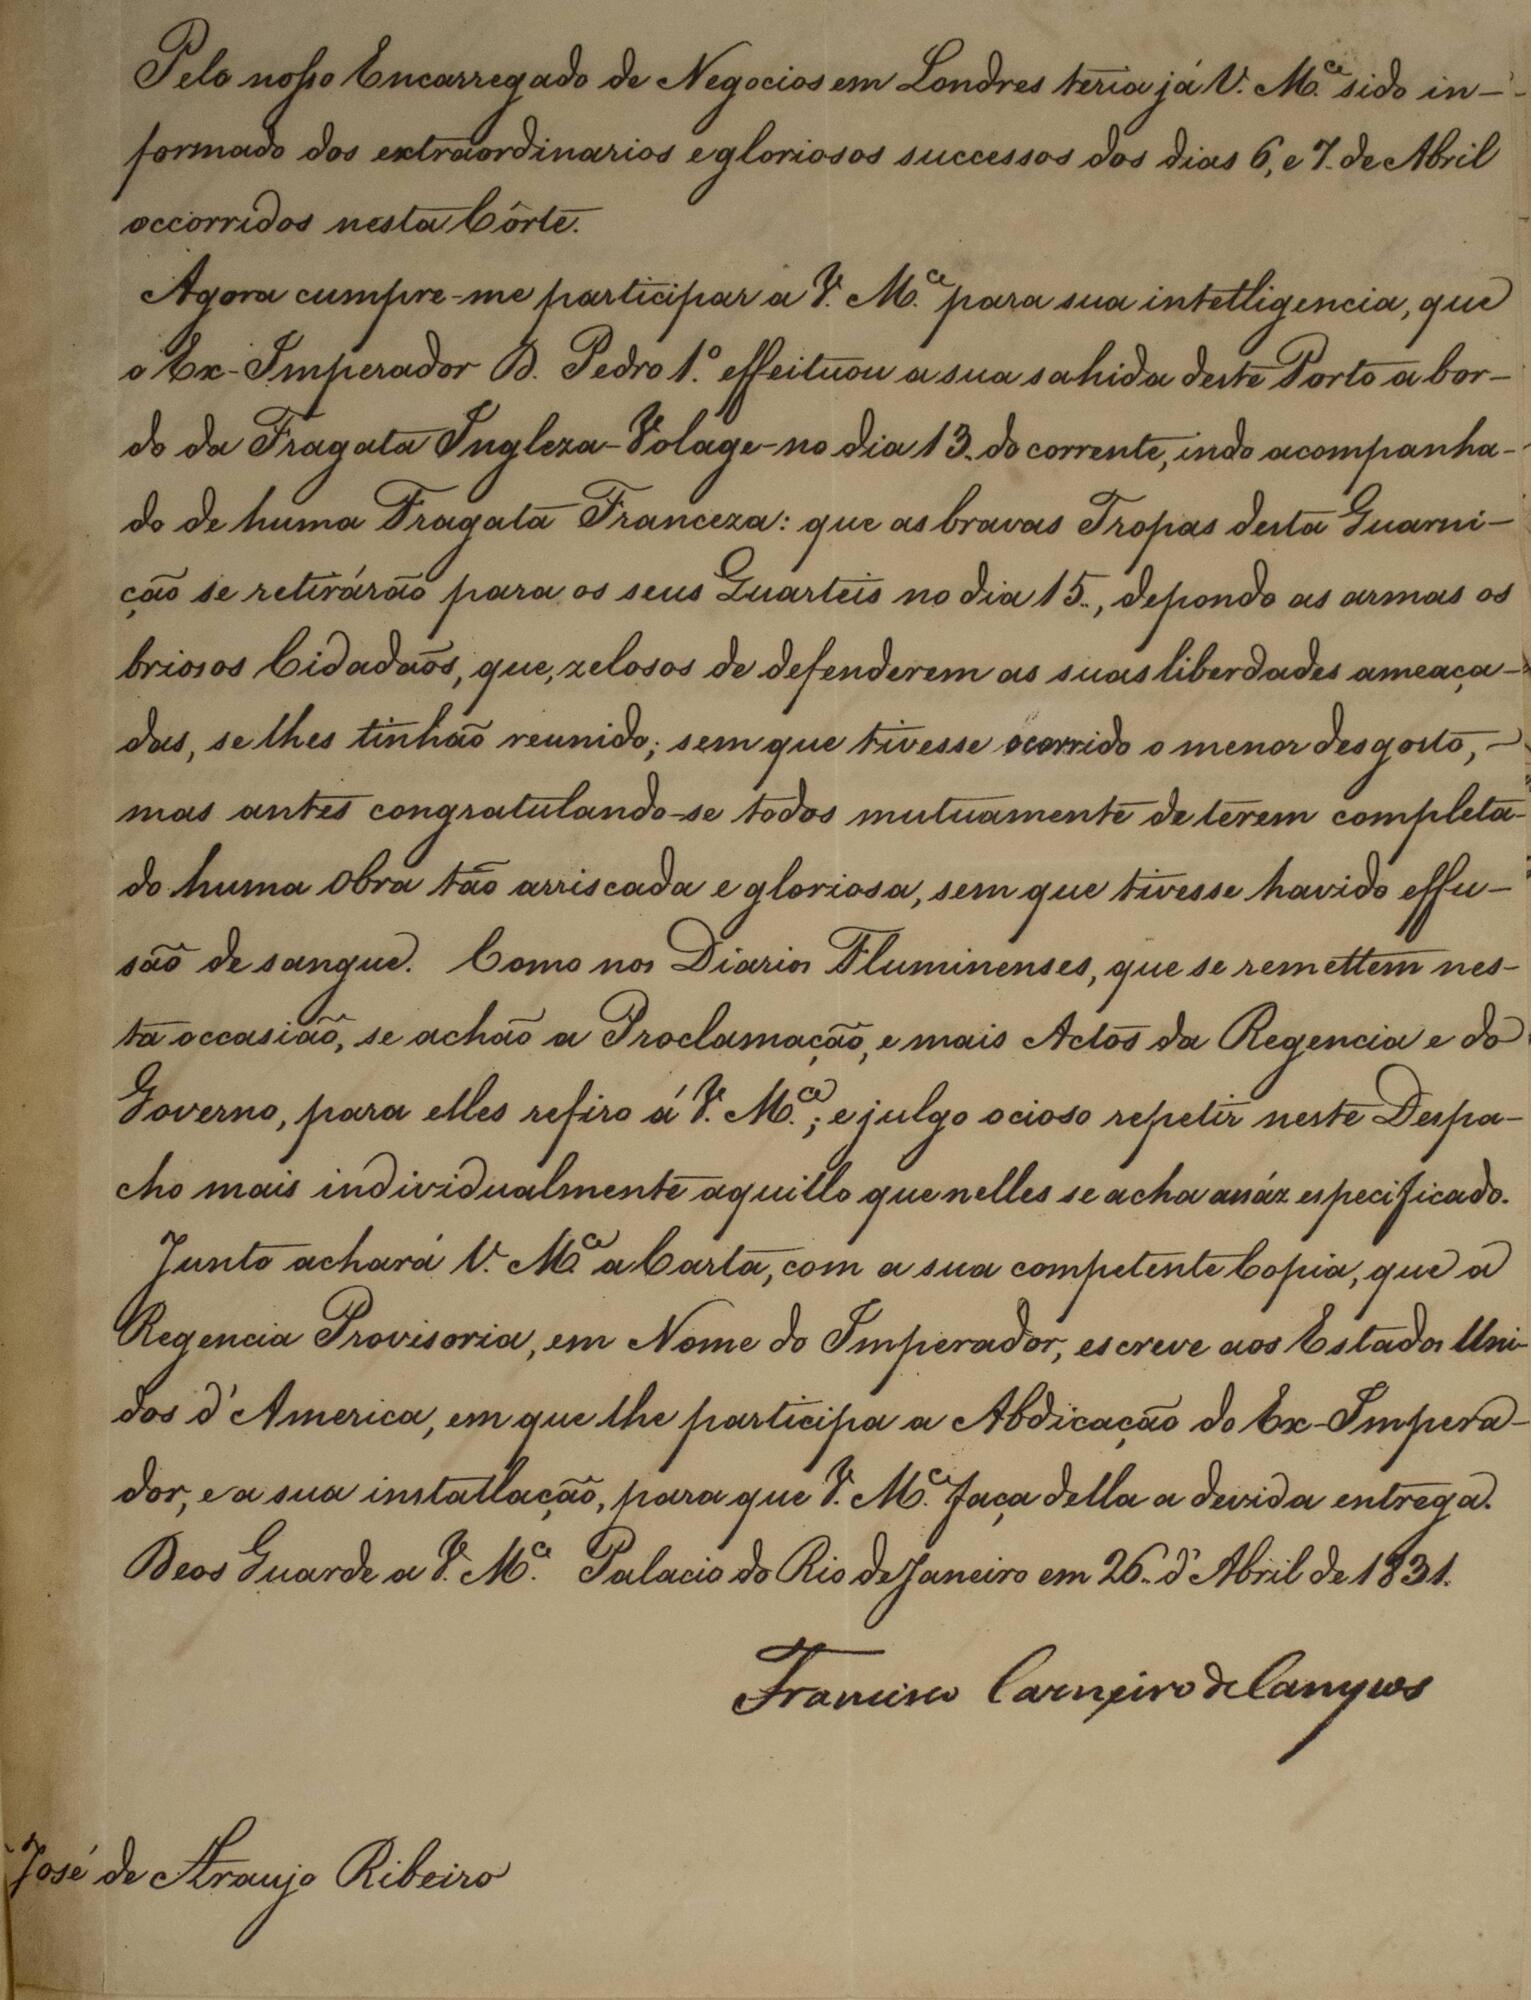 Pelo nosso Encarregado de Negocios em Londres teria já V. M.ce sido in-
formado dos extraordinarios e gloriosos successos dos dias 6, e 7. de Abril
occorridos nesta Côrte.
Agora cumpre-me participar a V. M.ce para sua intelligencia, que
o Ex-Imperador D. Pedro 1.º effeituou a sua sahida deste Porto a bor-
do da Fragata Ingleza-Volage-no dia 13. do corrente, indo acompanha-
do de huma Fragata Franceza: que as bravas Tropas desta Guarni-
ção se retirárão para os seus Quarteis no dia 15., depondo as armas os
briosos Cidadaõs, que, zelosos de defenderem as suas liberdades ameaça-
das, se lhes tinhão reunido; sem que tivesse ocorrido o menor desgosto,-
mas antes congratulando-se todos mutuamente de terem completa-
do huma Obra tão arriscada e gloriosa, sem que tivesse havido effu-
são de sangue. Como nos Diarios Fluminenses, que se remettem nes-
ta occasião, se achão a Proclamação, e mais Actos da Regencia e do
Governo, para elles refiro á V. M.ce; e julgo ocioso repetir neste Despa-
cho mais individualmente aquillo que nelles se acha assáz especificado.
Junto achará V. M.ce a Carta, com a sua competente Copia, que a
Regencia Provisoria, em Nome do Imperador, escreve aos Estados Uni-
dos d'America, em que lhe participa a Abdicação do Ex-Impera-
dor, e a sua installação, para que V. M.ce faça della a devida entrega.
Deos Guarde a V. M.ce Palacio do Rio de Janeiro em 26. d'Abril de 1831.
Francisco Carneiro de Campos
José de Araujo Ribeiro